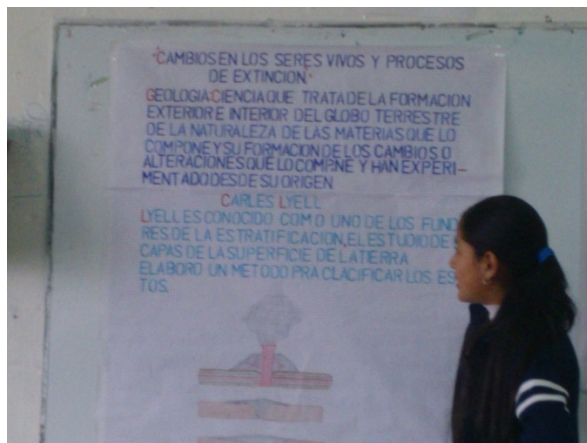 "CAMBIOS EN LOS SERES VIVOS Y PROCESOS
DE EXTINCION"
GEOLOGIA:CIENCIA QUE TRATA DE LA FORMACION
EXTERIOR E INTERIOR DEL GLOBO TERRESTRE
DE LA NATURALEZA DE LAS MATERIAS QUE LO
COMPONE Y SU FORMACION DE LOS CAMBIOS O
ALTERACIONES QUE LO COMPNE Y HAN EXPERI-
MENTADO DESDE SU ORIGEN
CARLES LYELL
LYELL ES CONOCIDO COMO UNO DE LOS FUND
RES DE LA ESTRATIFICACION, EL ESTUDIO DE
CAPAS DE LA SUPERFICIE DE LA TIERRA
ELABORO UN METODO PRA CLACIFICAR LOS ES
TOS.